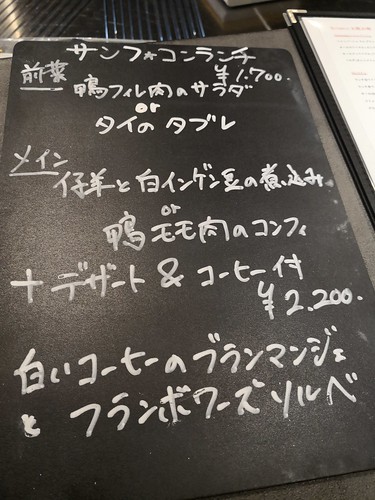 サンフォコンランチ
¥1.700.
前菜
鴨フィレ肉のサラダ
or
タイのタブレ
メイン
仔羊と白インゲン豆の煮込み
or
鴨モモ肉のコンフィ
+デザート&コーヒー付
¥2.200.
白いコーヒーのブランマンジェ
とフランボワーズソルベ